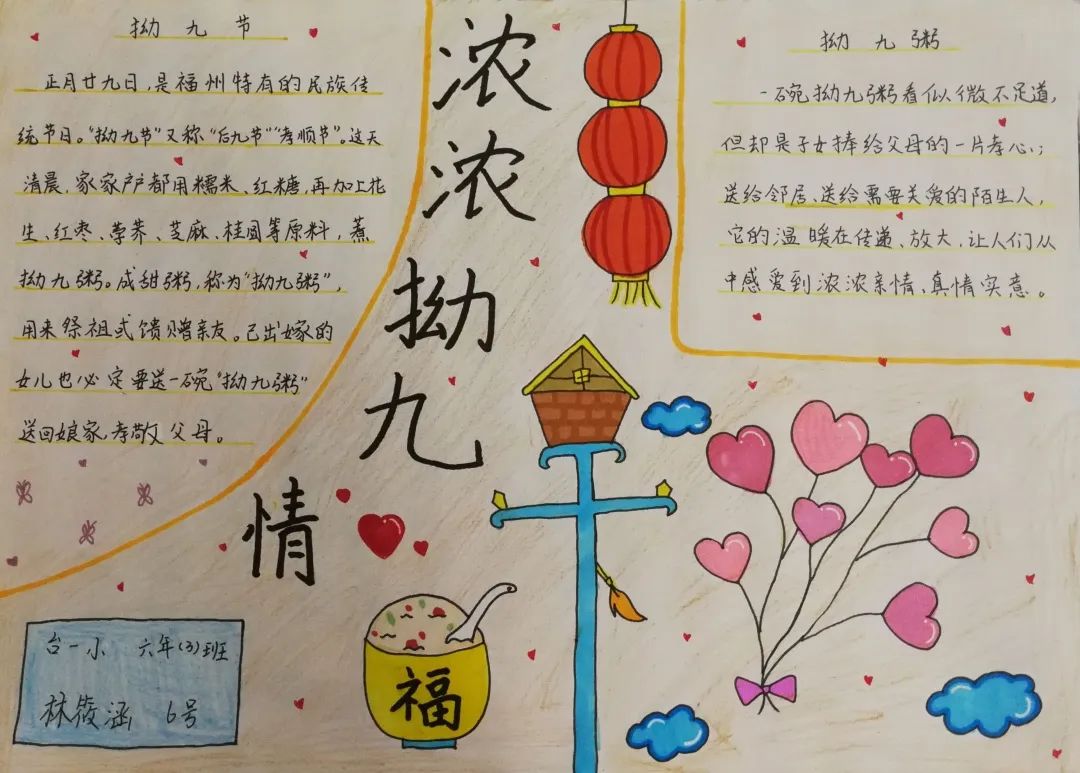 拗九节
正月廿九日，是福州特有的民族传
统节日。“拗九节”又称“后九节”“孝顺节”。这天
清晨，家家户户都用糯米、红糖，再加上花
生、红枣、荸荠、芝麻、桂圆等原料，熬
拗九粥。成甜粥，称为“拗九粥”，
用来祭祖或馈赠亲友。已出嫁的
女儿也必定要送一碗“拗九粥”
送回娘家，孝敬父母。
浓
浓
拗
九
情
拗九粥
一碗拗九粥看似微不足道，
但却是子女捧给父母的一片孝心；
送给邻居、送给需要关爱的陌生人，
它的温暖在传递、放大，让人们从
中感受到浓浓亲情，真情实意。
福
台一小 六年(3)班
林筱涵 6号